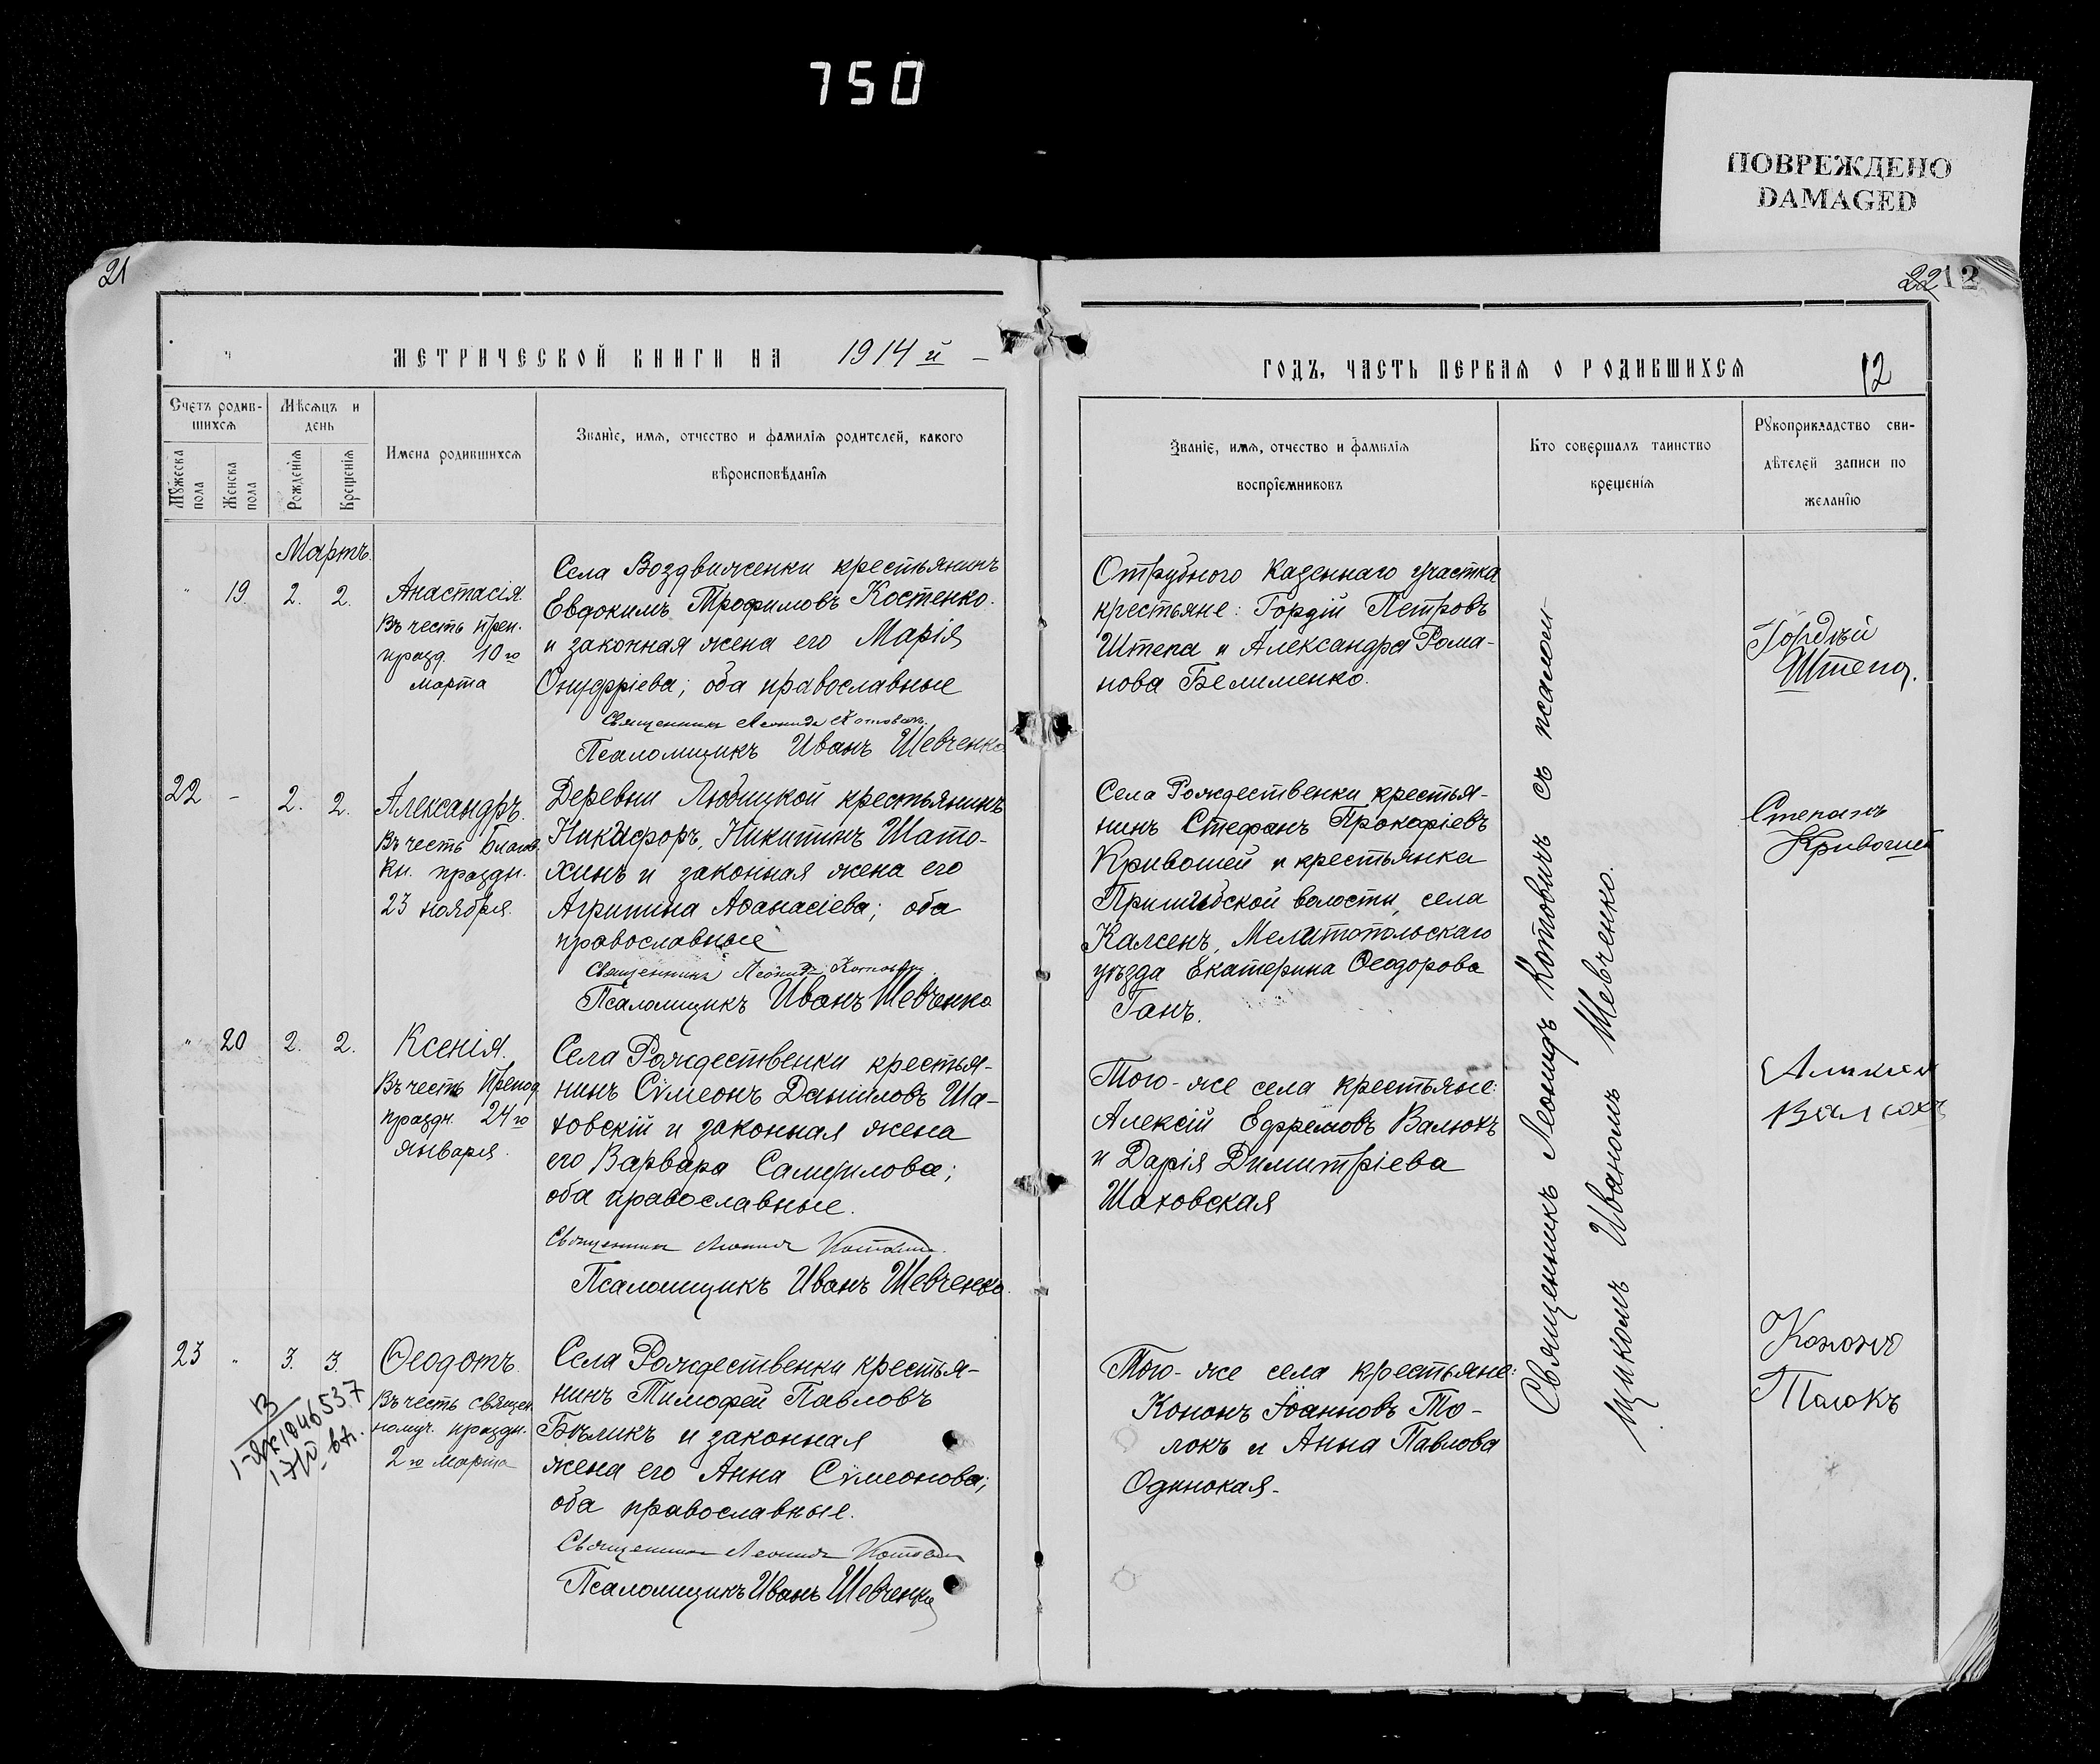 750
ПОВРЕЖДЕНО
DAMAGED
21
МЕТРИЧЕСКОЙ КНИГИ НА 1914 й
Счетъ родив-
шихся
Мѣсяцъ и
день
Мꙋжеска
пола
Женска
пола
Рожденія
Крещенія
Имена родившихся
Званіе, имя, отчество и фамилія родителей, какого
вѣроисповѣданія
Мартъ.
" 19. 2. 2.
Анастасія.
Въ честь Прен.
празд. 10го
марта
Села Воздвиженки крестьянинъ
Евдокимъ Трофимовъ Костенко.
и законная жена его Марія
Онуфріева; оба православные
Священникъ Леонидъ Котовичъ.
Псаломщикъ Иванъ Шевченко
22 - 2. 2.
Александръ.
Въ честь Благов.
Кн. праздн.
23 ноября.
Деревни Любицкой крестьянинъ
Никифоръ, Никитинъ Шато-
хинъ и законная жена его
Агрипина Аѳанасіева; оба
православные
Священникъ Леонидъ Котовичъ.
Псаломщикъ Иванъ Шевченко
" 20 2. 2.
Ксенія.
Въ честь Препод.
праздн. 24го
января.
Села Рождественки крестья-
нинъ Сѵмеонъ Даніиловъ Ша-
ховскій и законная жена
его Варвара Самуилова;
оба православные.
Священникъ Леонидъ Котовичъ.
Псаломщикъ Иванъ Шевченко.
23 " 3. 3
Ѳеодотъ.
Въ честь священ
номуч. праздн.
2го марта
1046537
Села Рождественки крестья-
нинъ Тимофей Павловъ
Бѣликъ и законная
жена его Анна Сѵмеонова;
оба православные.
Священникъ Леонидъ Котовичъ
Псаломщикъ Иванъ Шевченко
22 12
ГОДЪ, ЧАСТЬ ПЕРВАЯ О РОДИВШИХСЯ
12
Званіе, имя, отчество и фамилія
воспріемниковъ
Кто совершалъ таинство
крещенія
Рꙋкоприкладство сви-
дѣтелей записи по
желанію
Отрубного Казеннаго участка
крестьяне: Гордій Петровъ
Штепа и Александра Рома-
нова Белименко.
Гордѣй
Штепа.
Села Рождественки крестья-
нинъ Стефанъ Прокофіевъ
Кривошей и крестьянка
Пришибской волости, села
Калсенъ, Мелитопольскаго
уѣзда Екатерина Ѳеодорова
Ганъ.
Степанъ
Кривошей
Того-же села крестьяне:
Алексій Ефремовъ Валюхъ
и Дарія Димитріева
Шаховская
Валюхъ
Того-же села крестьяне:
Кононъ Іоанновъ То-
локъ и Анна Павлова
Одинокая.
Кононъ
Толокъ
Священникъ Леонидъ Котовичъ съ псалом-
щикомъ Иваномъ Шевченко.